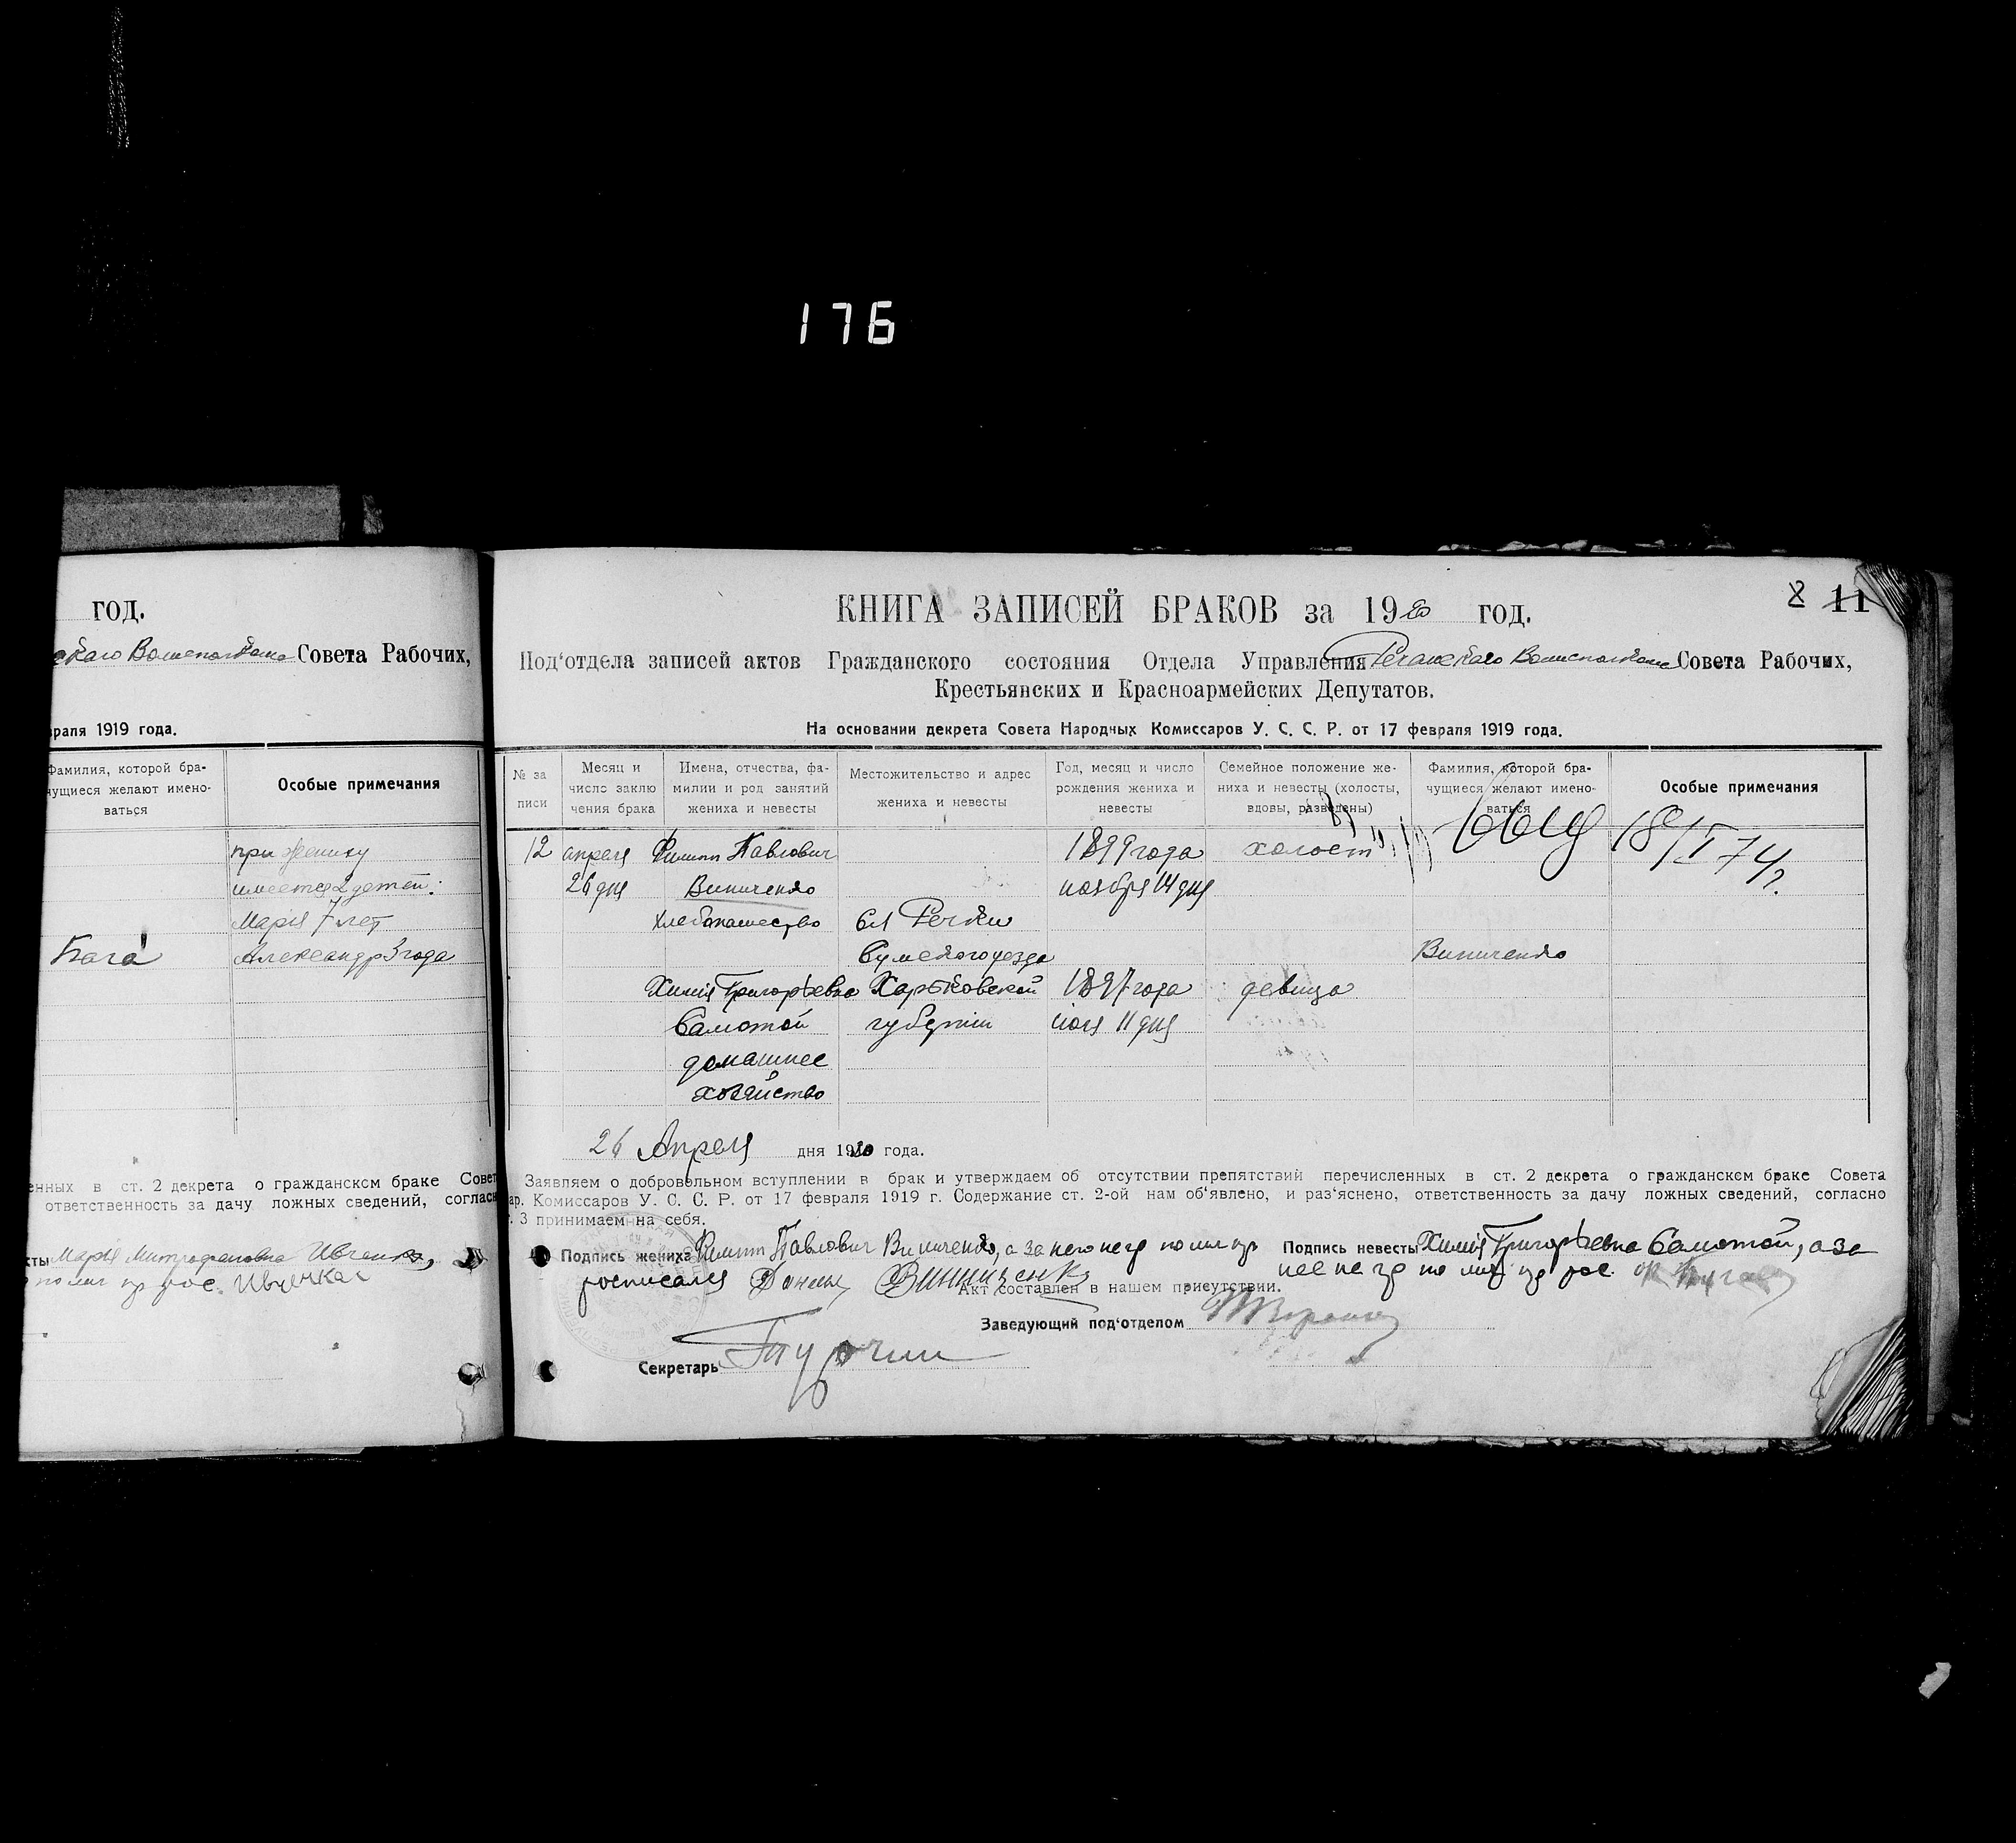 176
год.
Совета Рабочих,
раля 1919 года.
Фамилия, которой бра-
чущиеся желают имено-
ваться
Особые примечания
при женику
имеется 2 детей:
Марія 7 лет
Бага
Александр 3 года
енных в ст. 2 декрета о гражданском браке Совет
ответственность за дачу ложных сведений, согласн
Марія Митрофановна Ивченко,
8 11
КНИГА ЗАПИСЕЙ БРАКОВ за 1920 год.
Под'отдела записей актов Гражданского состояния Отдела Управления Речанского Волисполкома Совета Рабочих,
Крестьянских и Красноармейских Депутатов.
На основании декрета Совета Народных Комиссаров У. С. С. Р. от 17 февраля 1919 года.
№ за
писи
Месяц и
число заклю
чения брака
Имена, отчества, фа-
милии и род занятий
жениха и невесты
Местожительство и адрес
жениха и невесты
Год, месяц и число
рождения жениха и
невесты
Семейное положение же-
ниха и невесты (холосты,
вдовы, разведены)
Фамилия, которой бра-
чущиеся желают имено-
ваться
Особые примечания
12 апреля Филипп Павлович 1899 года холост 18/I 74 г.
26 дня Виниченко ноября 14 дня
хлебопашество сл Речки
Сумского уезда Виниченко
Химія Григорьевна Харьковской 1897 года девица
Самотой губернии 11 дня
домашнее
хозяйство
26 Апреля дня 1920 года.
Заявляем о добровольном вступлении в брак и утверждаем об отсутствии препятствий перечисленных в ст. 2 декрета о гражданском браке Совета
ар. Комиссаров У. С. С. Р. от 17 февраля 1919 г. Содержание ст. 2-ой нам об'явлено, и раз'яснено, ответственность за дачу ложных сведений, согласно
. 3 принимаем на себя.
Подпись жениха Филипп Павлович Виниченко, а за него негр по лич пр
росписался Винниченко
Подпись невесты Химія Григорьевна Самотой, а за
нее не гр по лич пр рос.
Акт составлен в нашем присутствии.
Заведующий под'отделом
Секретарь